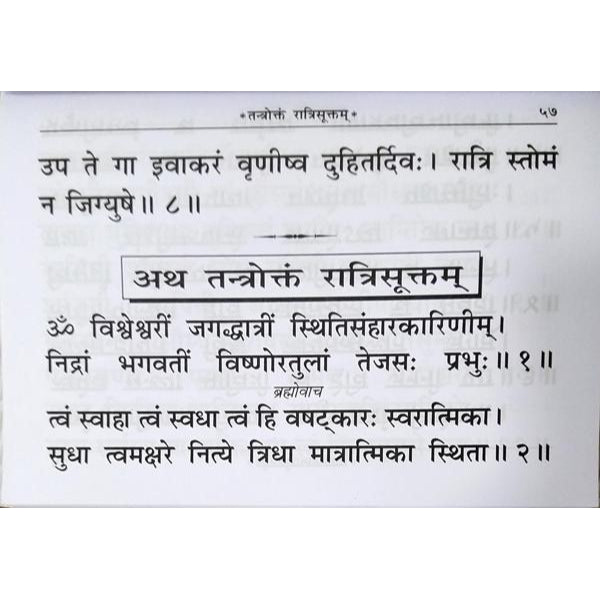 *तन्त्रोक्तं रात्रिसूक्तम्* ५७
उप ते गा इवाकरं वृणीष्व दुहितर्दिवः। रात्रि स्तोमं
न जिग्युषे॥ ८॥
अथ तन्त्रोक्तं रात्रिसूक्तम्
ॐ विश्वेश्वरीं जगद्धात्रीं स्थितिसंहारकारिणीम्।
निद्रां भगवतीं विष्णोरतुलां तेजसः प्रभुः॥ १॥
ब्रह्मोवाच
त्वं स्वाहा त्वं स्वधा त्वं हि वषट्कारः स्वरात्मिका।
सुधा त्वमक्षरे नित्ये त्रिधा मात्रात्मिका स्थिता॥ २॥